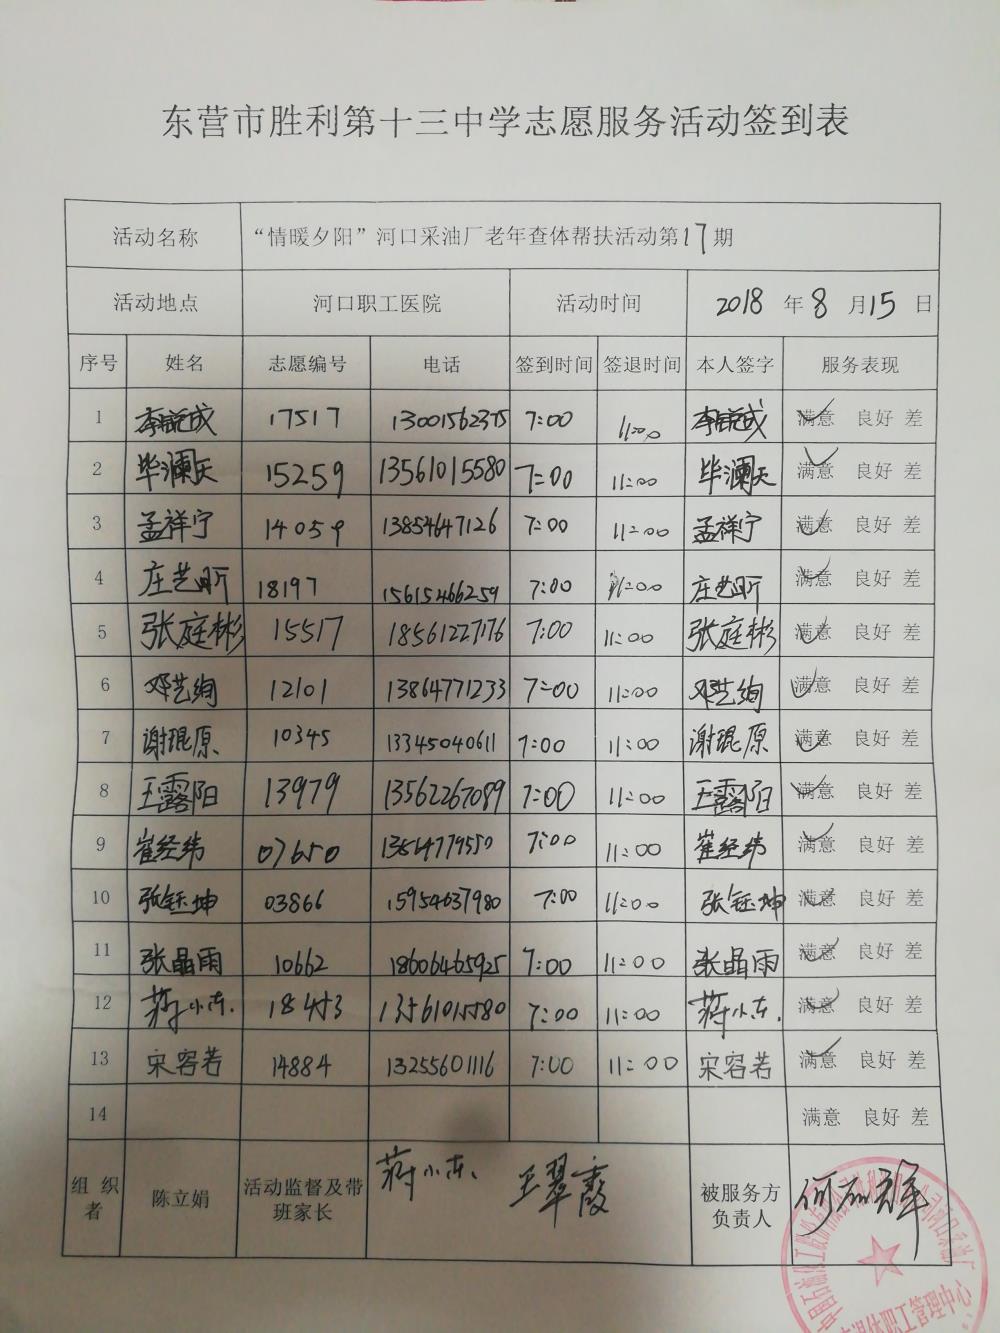 东营市胜利第十三中学志愿服务活动签到表
活动名称 “情暖夕阳”河口采油厂老年查体帮扶活动第17期
活动地点 河口职工医院 活动时间 2018 年 8 月 15 日
序号 姓名 志愿编号 电话 签到时间 签退时间 本人签字 服务表现
1 李毓成 17517 13001562375 7:00 11:00 李毓成 满意 良好 差
2 毕澜天 15259 13561015580 7:00 11:00 毕澜天 满意 良好 差
3 孟祥宁 14059 13854647126 7:00 11:00 孟祥宁 满意 良好 差
4 庄艺昕 18197 15615466259 7:00 11:00 庄艺昕 满意 良好 差
5 张庭彬 15517 18561227176 7:00 11:00 张庭彬 满意 良好 差
6 邓艺绚 12101 13864771233 7:00 11:00 邓艺绚 满意 良好 差
7 谢琨原 10345 13345040611 7:00 11:00 谢琨原 满意 良好 差
8 王露阳 13979 13562267089 7:00 11:00 王露阳 满意 良好 差
9 崔经纬 07650 13864779550 7:00 11:00 崔经纬 满意 良好 差
10 张钰坤 03866 15954637980 7:00 11:00 张钰坤 满意 良好 差
11 张晶雨 10662 18606465925 7:00 11:00 张晶雨 满意 良好 差
12 蒋小东. 18453 13561015580 7:00 11:00 蒋小东. 满意 良好 差
13 宋容若 14884 13255601116 7:00 11:00 宋容若 满意 良好 差
14 满意 良好 差
组织者 陈立娟 活动监督及带班家长 蒋小东. 王翠霞 被服务方负责人 何
职工管理中心